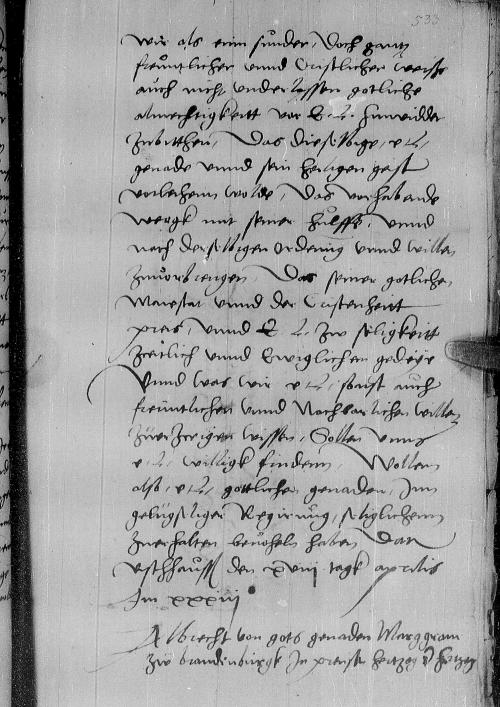 533
wir als einn sunder, doch gantz
freuntlicher unnd Cristlicher weisse
auch nicht underlassen gotliche
almechtigkeitt vor E. L. hinwidder
zubitthen, Das dieselbige, e. L.,
genade unnd sein heiligen geist
vorleihenn wolde, Das vorhabende
wergk mit seiner hulffe, unnd
nach derselbigen ordenung unnd willen
zuvorbrengen, Das seiner gotlichen
Maiestat unnd der Cristenheitt
preis, unnd E. L. zw seligkeitt
zeitlich unnd Ewiglichen gedeye
Unnd was wir e. L., sonst auch
freuntlichen unnd Nachbarlichen willen
zuerzeigen wissen, Sollen unns
e. L., willigk findenn, Wollenn
alsso, e. L., gottlicher genaden, Inn
gelugseliger Regirung, seliglichenn
zuerhalten bevoheln haben Dat
den xxviii tagk aprilis
Im xxxiii
Albrecht von gots genaden Marggraue
zw brandenburgk In preussen hertzog